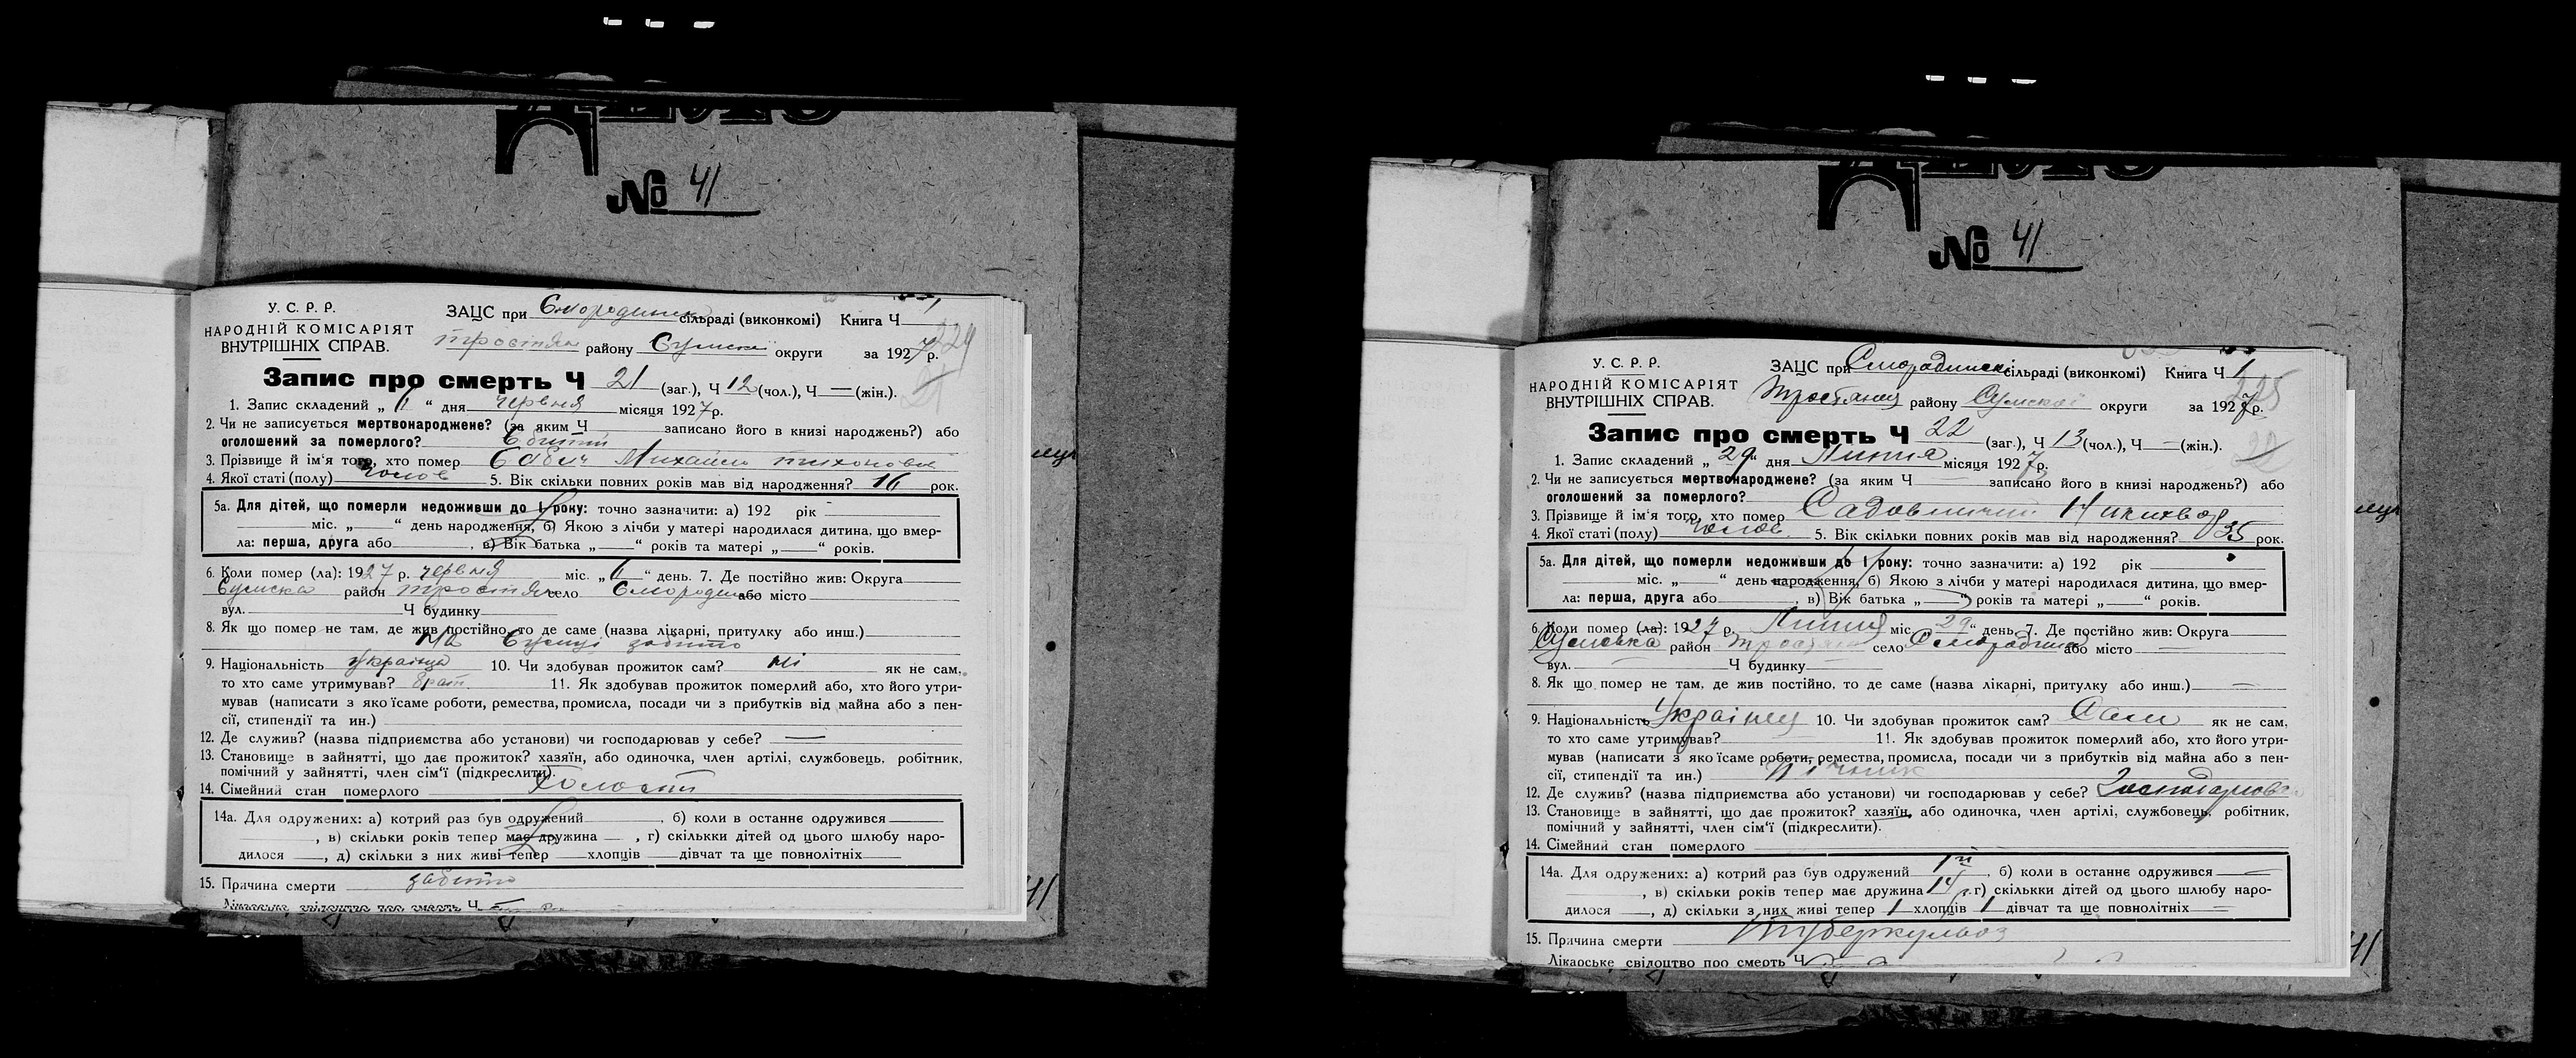 № 41
У. С. Р. Р.
НАРОДНІЙ КОМІСАРІЯТ
ВНУТРІШНІХ СПРАВ.
ЗАЦС при Смородинск сільраді (виконкомі) Книга Ч 1
тростян району Сумської округи за 1927 р.
224
21
Запис про смерть Ч 21 (заг.), Ч 12 (чол.), Ч — (жін.).
1. Запис складений „ 6 “ дня червня місяця 1927 р.
2. Чи не записується мертвонароджене? (за яким Ч записано його в книзі народжень?) або
оголошений за померлого?
3. Прізвище й ім'я того, хто помер Бабич Михайло тихонович
4. Якої статі (полу) чолов 5. Вік скільки повних років мав від народження? 16 рок.
5а. Для дітей, що померли недоживши до 1 року: точно зазначити: а) 192 рік
міс. „ “ день народження, б) Якою з лічби у матері народилася дитина, що вмер-
ла: перша, друга або , в) Вік батька „ “ років та матері „ “ років.
6. Коли помер (ла): 1927 р. червня міс. „ 6 “ день. 7. Де постійно жив: Округа
Сумска район тростян село Смородин або місто
вул. Ч будинку
8. Як що помер не там, де жив постійно, то де саме (назва лікарні, притулку або инш.)
забито
9. Національність українца 10. Чи здобував прожиток сам? ні як не сам,
то хто саме утримував? брат 11. Як здобував прожиток померлий або, хто його утри-
мував (написати з якоїсаме роботи, ремества, промисла, посади чи з прибутків від майна або з пен-
сії, стипендії та ин.)
12. Де служив? (назва підприємства або установи) чи господарював у себе? —
13. Становище в зайнятті, що дає прожиток? хазяїн, або одиночка, член артілі, службовець, робітник,
помічний у зайнятті, член сім'ї (підкреслити).
14. Сімейний стан померлого Холостий
14а. Для одружених: а) котрий раз був одружений , б) коли в останнє одружився
, в) скільки років тепер має дружина , г) скількки дітей од цього шлюбу наро-
дилося , д) скільки з них живі тепер хлопців дівчат та ще повнолітніх
15. Причина смерти забито
Лікарське свідоцтво про смерть Ч —
№ 41
У. С. Р. Р.
НАРОДНІЙ КОМІСАРІЯТ
ВНУТРІШНІХ СПРАВ.
ЗАЦС при Смородинск сільраді (виконкомі) Книга Ч 1
Тростянец району Сумської округи за 1927 р.
225
22
Запис про смерть Ч 22 (заг.), Ч 13 (чол.), Ч — (жін.).
1. Запис складений „ 29 “ дня Липня місяця 1927 р.
2. Чи не записується мертвонароджене? (за яким Ч записано його в книзі народжень?) або
оголошений за померлого?
3. Прізвище й ім'я того, хто помер Садовничий
4. Якої статі (полу) чолов. 5. Вік скільки повних років мав від народження? 35 рок.
5а. Для дітей, що померли недоживши до 1 року: точно зазначити: а) 192 рік
міс. „ “ день народження, б) Якою з лічби у матері народилася дитина, що вмер-
ла: перша, друга або , в) Вік батька „ “ років та матері „ “ років.
6. Коли помер (ла): 1927 р. Липня міс. 29 “ день. 7. Де постійно жив: Округа
Сумська район Тростян село Смородина або місто —
вул. — Ч будинку —
8. Як що помер не там, де жив постійно, то де саме (назва лікарні, притулку або инш.) —
9. Національність Українец 10. Чи здобував прожиток сам? Сам як не сам,
то хто саме утримував? 11. Як здобував прожиток померлий або, хто його утри-
мував (написати з якоїсаме роботи, ремества, промисла, посади чи з прибутків від майна або з пен-
сії, стипендії та ин.)
12. Де служив? (назва підприємства або установи) чи господарював у себе? Господарював
13. Становище в зайнятті, що дає прожиток? хазяїн, або одиночка, член артілі, службовець, робітник,
помічний у зайнятті, член сім'ї (підкреслити).
14. Сімейний стан померлого
14а. Для одружених: а) котрий раз був одружений 1й , б) коли в останнє одружився —
, в) скільки років тепер має дружина 14 р. г) скількки дітей од цього шлюбу наро-
дилося , д) скільки з них живі тепер 1 хлопців 1 дівчат та ще повнолітніх —
15. Причина смерти туберкульоз
Лікарське свідоцтво про смерть Ч